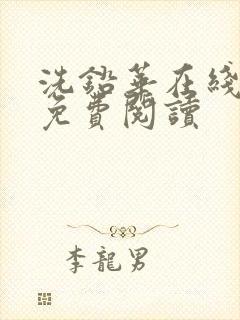 洗鉛華在綫
免費閱讀
李龍男